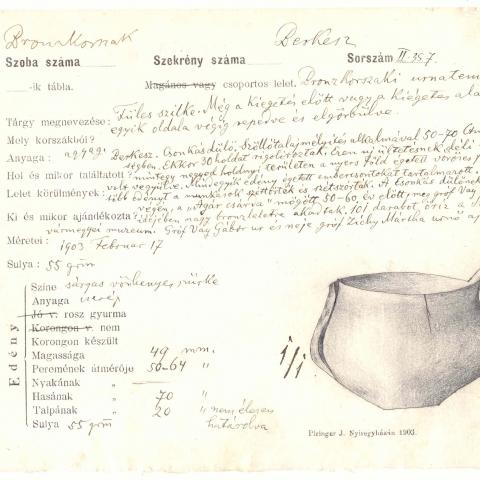 Bronzkornak Berkesz
Szoba száma Szekrény száma Sorszám II-35.7.
-ik tábla. Magános vagy csoportos lelet. Bronzkorszaki urnatem
Tárgy megnevezése: Füles szilke. Még a kiégetés előtt vagy a kiégetés ala
egyik oldala végig repedve és elgörbülve.
Mely korszakból?
Anyaga: agyag. Berkesz. Csonkásdülő, Szőllőtalajmélyítés alkalmával 50-70
Hol és mikor találtatott? ségben. Ekkor 30 holdat rigoliroztak. Ezen új ültetésnek déli
mintegy negyed holdnyi területen a nyers föld égetett vörös
Lelet körülményei: volt vegyülve. Mindegyik edény égetett embercsontokat tartalmazott.
több edényt a munkások széttörtek és szétszórtak. A Csonkás dülőnek
végén, a "Agár csárva" mögött 50-60 év előtt, meg gróf Vay
Ki és mikor ajándékozta? idejében nagy bronzleletre akadtak. 101 darabot őriz a
vármegyei muzeum. Gróf Vay Gábor ur és neje gróf Zichy Mártha urnő
Méretei: 1903 Február 17
Sulya: 55 grm
Edény
Szine sárgás vörhenyes szürke
Anyaga cserép
Jó v. rosz gyurma
Korongon v. nem
Korongon készült
Magassága 49 mm.
Peremének átmérője 50-64 "
Nyakának "
Hasának " 70 "
Talpának " 20 " nem élesen
Sulya 55 grm határolva
1/1
Piringer J. Nyiregyházán 1903.